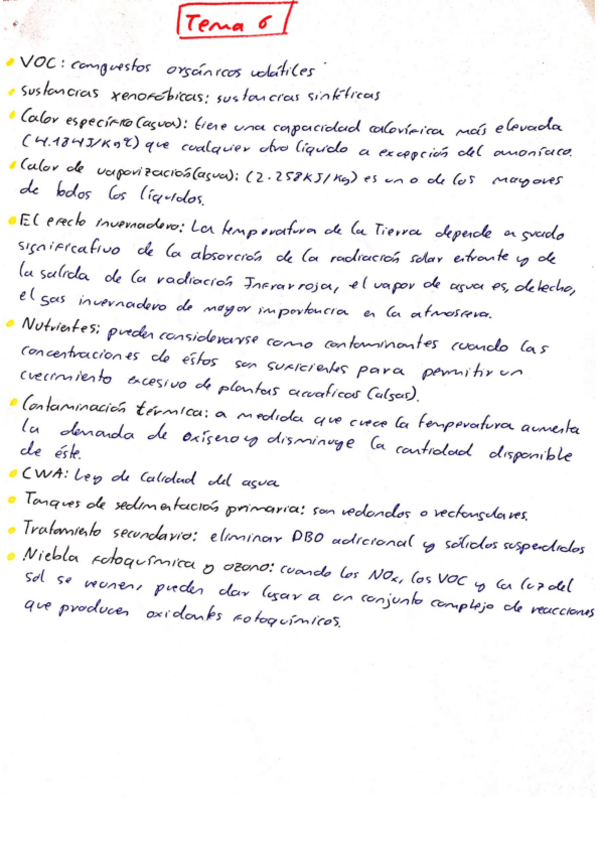 Tema 6
VOC: compuestos orgánicos volátiles
Sustancias xenofóbicas: sustancias sintéticas
Calor específico (agua): tiene una capacidad calorífica más elevada
(4.184J/Kgºc) que cualquier otro líquido a excepción del amoníaco.
Calor de vaporización (agua): (2.258KJ/Kg) es uno de los mayores
de todos los líquidos.
El efecto invernadero: La temperatura de la Tierra depende en grado
significativo de la absorción de la radiación solar entrante y de
la salida de la radiación Infrarroja, el vapor de agua es, de hecho,
el gas invernadero de mayor importancia en la atmosfera.
Nutrientes: pueden considerarse como contaminantes cuando las
concentraciones de éstos son suficientes para permitir un
crecimiento excesivo de plantas acuaticas (algas).
Contaminación térmica: a medida que crece la temperatura aumenta
la demanda de oxígeno y disminuye la cantidad disponible
de éste.
CWA: Ley de Calidad del agua
Tanques de sedimentación primaria: son redondos o rectangulares.
Tratamiento secundario: eliminar DBO adicional y sólidos suspendidos
Niebla fotoquímica y ozono: cuando los NOx, los VOC y la luz del
sol se reunen, pueden dar lugar a un conjunto complejo de reacciones
que producen oxidantes fotoquímicos.